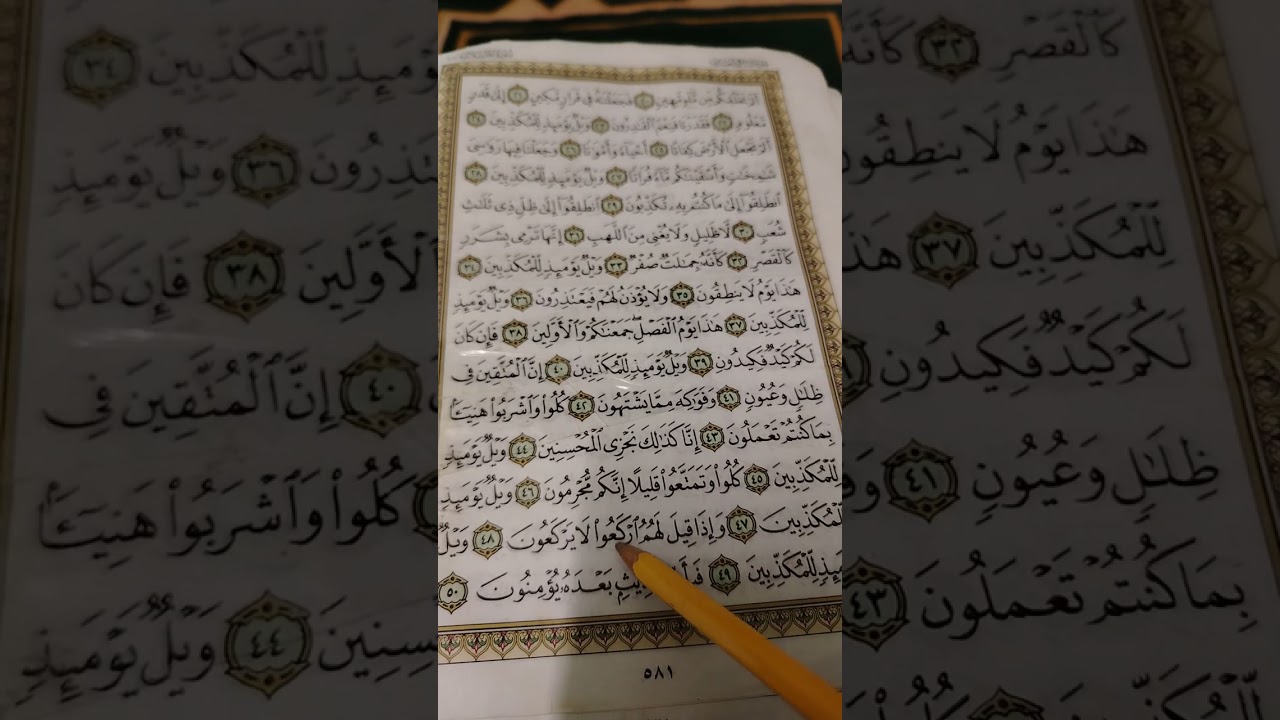 أَلَمْ نَخْلُقكُّم مِّن مَّآءٍ مَّهِينٍ ٢٠ فَجَعَلْنَٰهُ فِى قَرَارٍ مَّكِينٍ ٢١ إِلَىٰ قَدَرٍ
مَّعْلُومٍ ٢٢ فَقَدَرْنَا فَنِعْمَ ٱلْقَٰدِرُونَ ٢٣ وَيْلٌ يَوْمَئِذٍ لِّلْمُكَذِّبِينَ ٢٤
أَلَمْ نَجْعَلِ ٱلْأَرْضَ كِفَاتًا ٢٥ أَحْيَآءً وَأَمْوَٰتًا ٢٦ وَجَعَلْنَا فِيهَا رَوَٰسِىَ
شَٰمِخَٰتٍ وَأَسْقَيْنَٰكُم مَّآءً فُرَاتًا ٢٧ وَيْلٌ يَوْمَئِذٍ لِّلْمُكَذِّبِينَ ٢٨
ٱنطَلِقُوٓا۟ إِلَىٰ مَا كُنتُم بِهِۦ تُكَذِّبُونَ ٢٩ ٱنطَلِقُوٓا۟ إِلَىٰ ظِلٍّ ذِى ثَلَٰثِ
شُعَبٍ ٣٠ لَّا ظَلِيلٍ وَلَا يُغْنِى مِنَ ٱللَّهَبِ ٣١ إِنَّهَا تَرْمِى بِشَرَرٍ
كَٱلْقَصْرِ ٣٢ كَأَنَّهُۥ جِمَٰلَتٌ صُفْرٌ ٣٣ وَيْلٌ يَوْمَئِذٍ لِّلْمُكَذِّبِينَ ٣٤
هَٰذَا يَوْمُ لَا يَنطِقُونَ ٣٥ وَلَا يُؤْذَنُ لَهُمْ فَيَعْتَذِرُونَ ٣٦ وَيْلٌ يَوْمَئِذٍ
لِّلْمُكَذِّبِينَ ٣٧ هَٰذَا يَوْمُ ٱلْفَصْلِ ۖ جَمَعْنَٰكُمْ وَٱلْأَوَّلِينَ ٣٨ فَإِن كَانَ
لَكُمْ كَيْدٌ فَكِيدُونِ ٣٩ وَيْلٌ يَوْمَئِذٍ لِّلْمُكَذِّبِينَ ٤٠ إِنَّ ٱلْمُتَّقِينَ فِى
ظِلَٰلٍ وَعُيُونٍ ٤١ وَفَوَٰكِهَ مِمَّا يَشْتَهُونَ ٤٢ كُلُوا۟ وَٱشْرَبُوا۟ هَنِيٓـًٔۢا
بِمَا كُنتُمْ تَعْمَلُونَ ٤٣ إِنَّا كَذَٰلِكَ نَجْزِى ٱلْمُحْسِنِينَ ٤٤ وَيْلٌ يَوْمَئِذٍ
لِّلْمُكَذِّبِينَ ٤٥ كُلُوا۟ وَتَمَتَّعُوا۟ قَلِيلًا إِنَّكُم مُّجْرِمُونَ ٤٦ وَيْلٌ يَوْمَئِذٍ
لِّلْمُكَذِّبِينَ ٤٧ وَإِذَا قِيلَ لَهُمُ ٱرْكَعُوا۟ لَا يَرْكَعُونَ ٤٨ وَيْلٌ
لِّلْمُكَذِّبِينَ ٤٩ بَعْدَهُۥ يُؤْمِنُونَ ٥٠
٥٨١